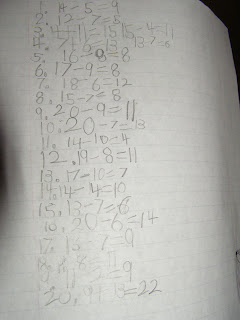 1. 14-5=9
2. 12-7=5
3. 4+11=15 15-4=11
4. 7+6=13 13-7=6
5. 16-8=8
6. 17-9=8
7. 18-6=12
8. 15-7=8
9. 20-9=11
10. 20-7=13
11. 14-10=4
12. 19-8=11
13. 17-10=7
14. 14-4=10
15. 13-7=6
16. 20-6=14
17. -7=9
=9
20. =22